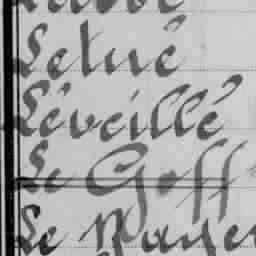 Letué
Léveillé
Le Goff
Le